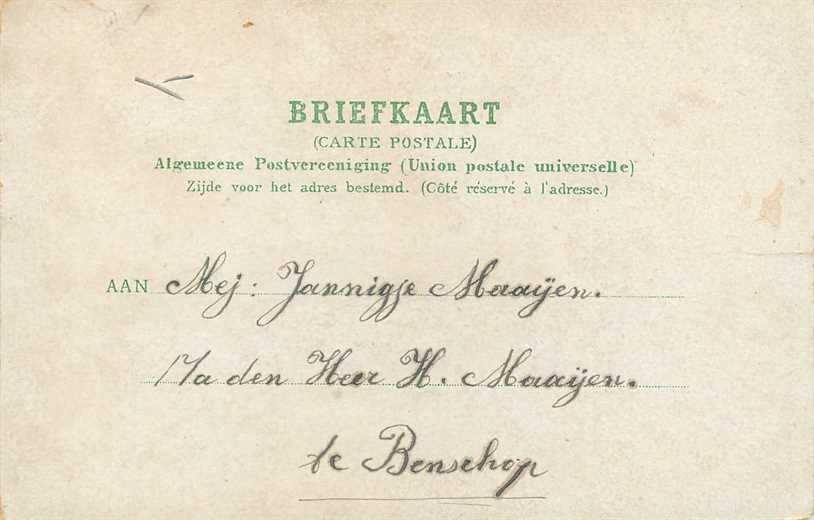 BRIEFKAART
(CARTE POSTALE)
Algemeene Postvereeniging (Union postale universelle)
Zijde voor het adres bestemd. (Côté réservé à l'adresse.)
AAN Mej: Jannigje Maaijen.
p/a den Heer H. Maaijen.
te Benschop